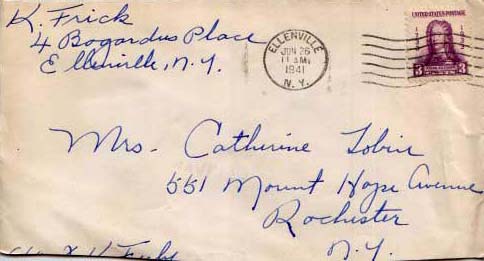 K. Frick
4 Bogardus Place
Ellenville, N.Y.
ELLENVILLE
JUN 26
11 AM
1941
N.Y.
UNITED STATES POSTAGE
3 3
Mrs. Catherine Tobin
551 Mount Hope Avenue
Rochester
N.Y.